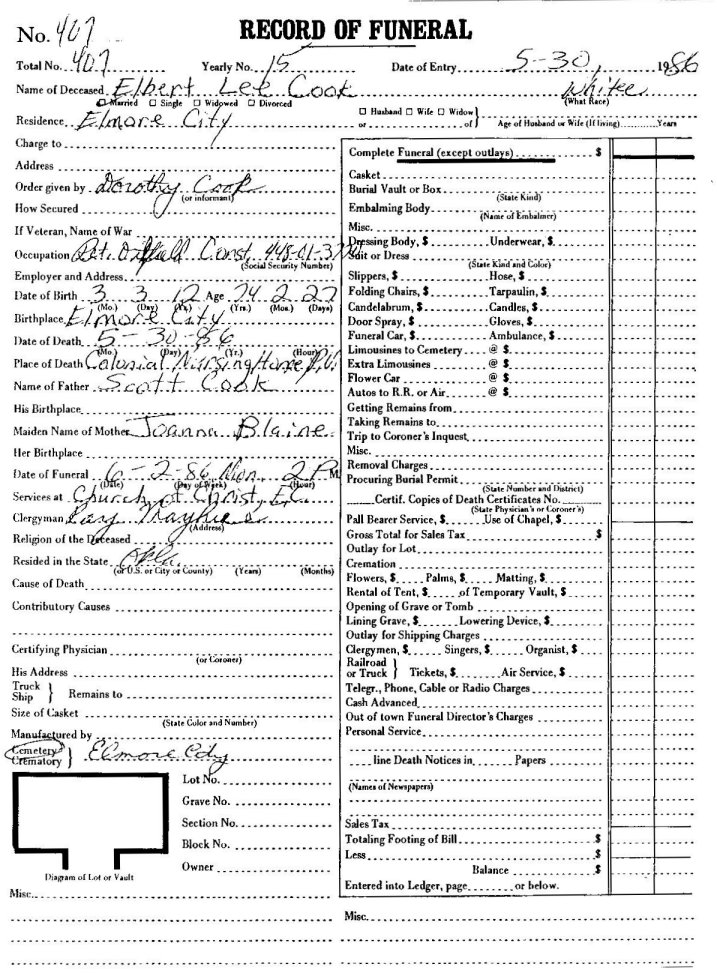 No. 407
RECORD OF FUNERAL
Total No. 407 Yearly No. 15 Date of Entry 5-30, 1986
Name of Deceased Elbert Lee Cook White
☐ Married ☐ Single ☐ Widowed ☐ Divorced (What Race)
Residence Elmore City ☐ Husband ☐ Wife ☐ Widow} or of } Age of Husband or Wife (If living) Years
Charge to
Address
Order given by Dorothy Cook
(or informant)
How Secured
If Veteran, Name of War
Occupation Ret. Oilfield Const. 448-01-3
(Social Security Number)
Employer and Address
Date of Birth 3 3 12 Age 74 2 27
(Mo.) (Day) (Yr.) (Yrs.) (Mos.) (Days)
Birthplace Elmore City
Date of Death 5-30-86
(Mo.) (Day) (Yr.) (Hour)
Place of Death Colonial Nursing Home P.V.
Name of Father Scott Cook
His Birthplace
Maiden Name of Mother Joanna Blaine
Her Birthplace
Date of Funeral 6-2-86 Mon. 2 PM
(Date) (Day of Week) (Hour)
Services at Church of Christ, E.C.
Clergyman Ray
(Address)
Religion of the Deceased
Resided in the State Okla.
(or U.S. or City or County) (Years) (Months)
Cause of Death
Contributory Causes
Certifying Physician
(or Coroner)
His Address
Truck
Ship } Remains to
Size of Casket
(State Color and Number)
Manufactured by
Cemetery
Crematory } Elmore City
Lot No.
Grave No.
Section No.
Block No.
Owner
Diagram of Lot or Vault
Misc.
Complete Funeral (except outlays) $
Casket
Burial Vault or Box
(State Kind)
Embalming Body
(Name of Embalmer)
Misc.
Dressing Body, $ Underwear, $
Suit or Dress
(State Kind and Color)
Slippers, $ Hose, $
Folding Chairs, $ Tarpaulin, $
Candelabrum, $ Candles, $
Door Spray, $ Gloves, $
Funeral Car, $ Ambulance, $
Limousines to Cemetery @ $
Extra Limousines @ $
Flower Car @ $
Autos to R.R. or Air @ $
Getting Remains from
Taking Remains to
Trip to Coroner's Inquest
Misc.
Removal Charges
Procuring Burial Permit
(State Number and District)
Certif. Copies of Death Certificates No.
(State Physician's or Coroner's)
Pall Bearer Service, $ Use of Chapel, $
Gross Total for Sales Tax $
Outlay for Lot
Cremation
Flowers, $ Palms, $ Matting, $
Rental of Tent, $ of Temporary Vault, $
Opening of Grave or Tomb
Lining Grave, $ Lowering Device, $
Outlay for Shipping Charges
Clergymen, $ Singers, $ Organist, $
Railroad
or Truck } Tickets, $ Air Service, $
Telegr., Phone, Cable or Radio Charges
Cash Advanced
Out of town Funeral Director's Charges
Personal Service
line Death Notices in Papers
(Names of Newspapers)
Sales Tax
Totaling Footing of Bill $
Less $
Balance $
Entered into Ledger, page or below.
Misc.